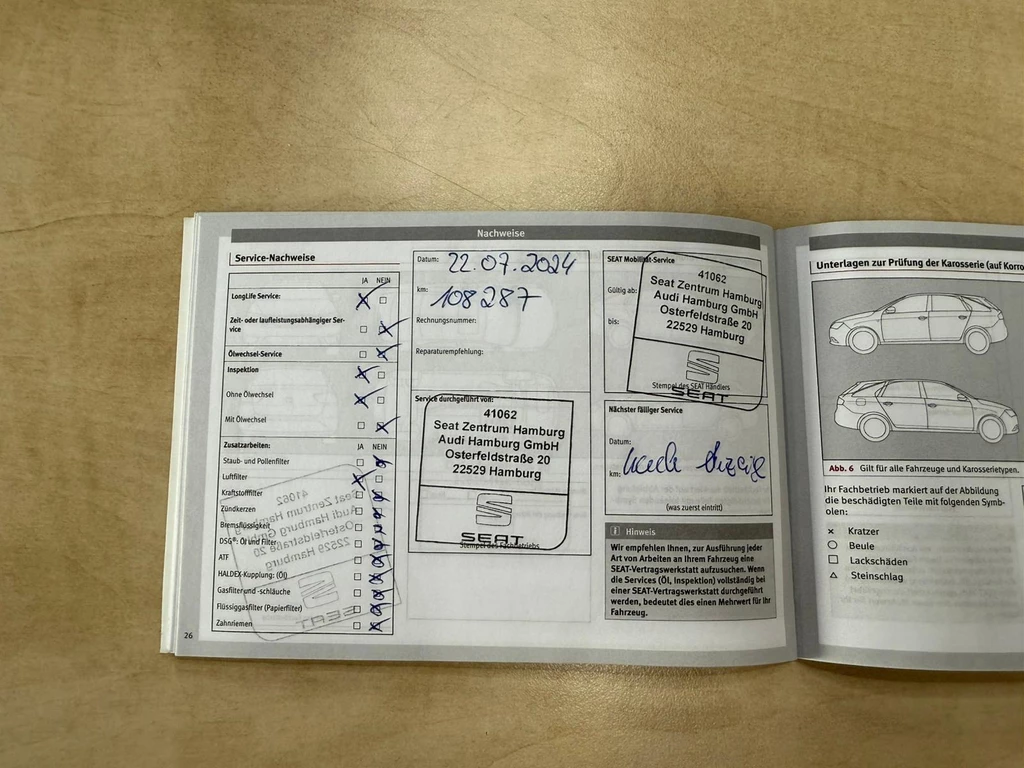 Nachweise
Service-Nachweise
JA NEIN
LongLife Service:
Zeit- oder laufleistungsabhängiger Ser-
vice
Ölwechsel-Service
Inspektion
Ohne Ölwechsel
Mit Ölwechsel
Zusatzarbeiten: JA NEIN
Staub- und Pollenfilter
Luftfilter
Kraftstofffilter
Zündkerzen
Bremsflüssigkeit
DSG®: Öl und Filter
ATF
HALDEX-Kupplung: (Öl)
Gasfilter und -schläuche
Flüssiggasfilter (Papierfilter)
Zahnriemen
26
41062
Seat Zentrum Hamburg
Audi Hamburg GmbH
Osterfeldstraße 20
22529 Hamburg
SEAT
Datum: 22.07.2024
km: 108287
Rechnungsnummer:
Reparaturempfehlung:
Service durchgeführt von:
41062
Seat Zentrum Hamburg
Audi Hamburg GmbH
Osterfeldstraße 20
22529 Hamburg
SEAT
Stempel des Fachbetriebs
SEAT Mobilität-Service
Gültig ab:
bis:
41062
Seat Zentrum Hamburg
Audi Hamburg GmbH
Osterfeldstraße 20
22529 Hamburg
Stempel des SEAT Händlers
SEAT
Nächster fälliger Service
Datum:
km:
(was zuerst eintritt)
i Hinweis
Wir empfehlen Ihnen, zur Ausführung jeder
Art von Arbeiten an Ihrem Fahrzeug eine
SEAT-Vertragswerkstatt aufzusuchen. Wenn
die Services (Öl, Inspektion) vollständig bei
einer SEAT-Vertragswerkstatt durchgeführt
werden, bedeutet dies einen Mehrwert für Ihr
Fahrzeug.
Unterlagen zur Prüfung der Karosserie (auf Korro
Abb. 6 Gilt für alle Fahrzeuge und Karosserietypen.
Ihr Fachbetrieb markiert auf der Abbildung
die beschädigten Teile mit folgenden Symb-
olen:
× Kratzer
○ Beule
□ Lackschäden
△ Steinschlag